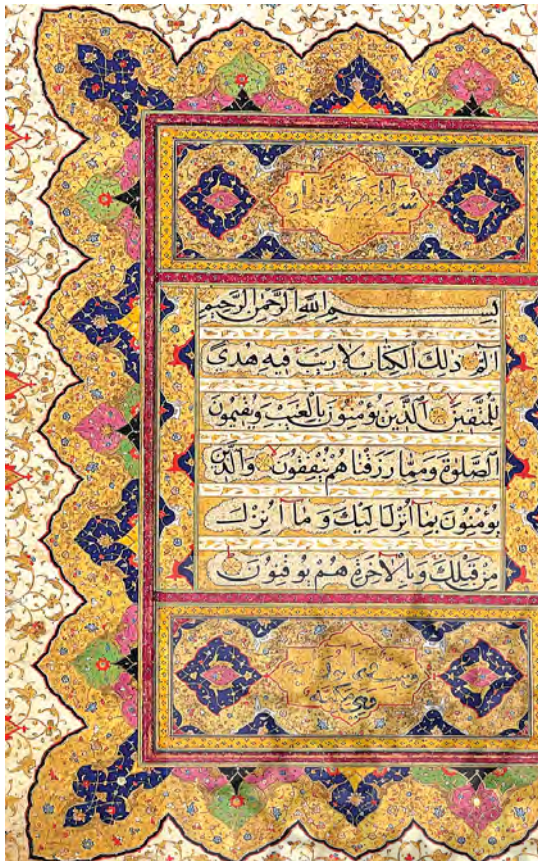 بِسْمِ اللَّهِ الرَّحْمٰنِ الرَّحِيمِ
الٓمٓ ذٰلِكَ الْكِتَابُ لَا رَيْبَ فِيهِ هُدًى
لِلْمُتَّقِينَ الَّذِينَ يُؤْمِنُونَ بِالْغَيْبِ وَيُقِيمُونَ
الصَّلٰوةَ وَمِمَّا رَزَقْنَاهُمْ يُنْفِقُونَ وَالَّذِينَ
يُؤْمِنُونَ بِمَا أُنْزِلَ إِلَيْكَ وَمَا أُنْزِلَ
مِنْ قَبْلِكَ وَبِالْآخِرَةِ هُمْ يُوقِنُونَ